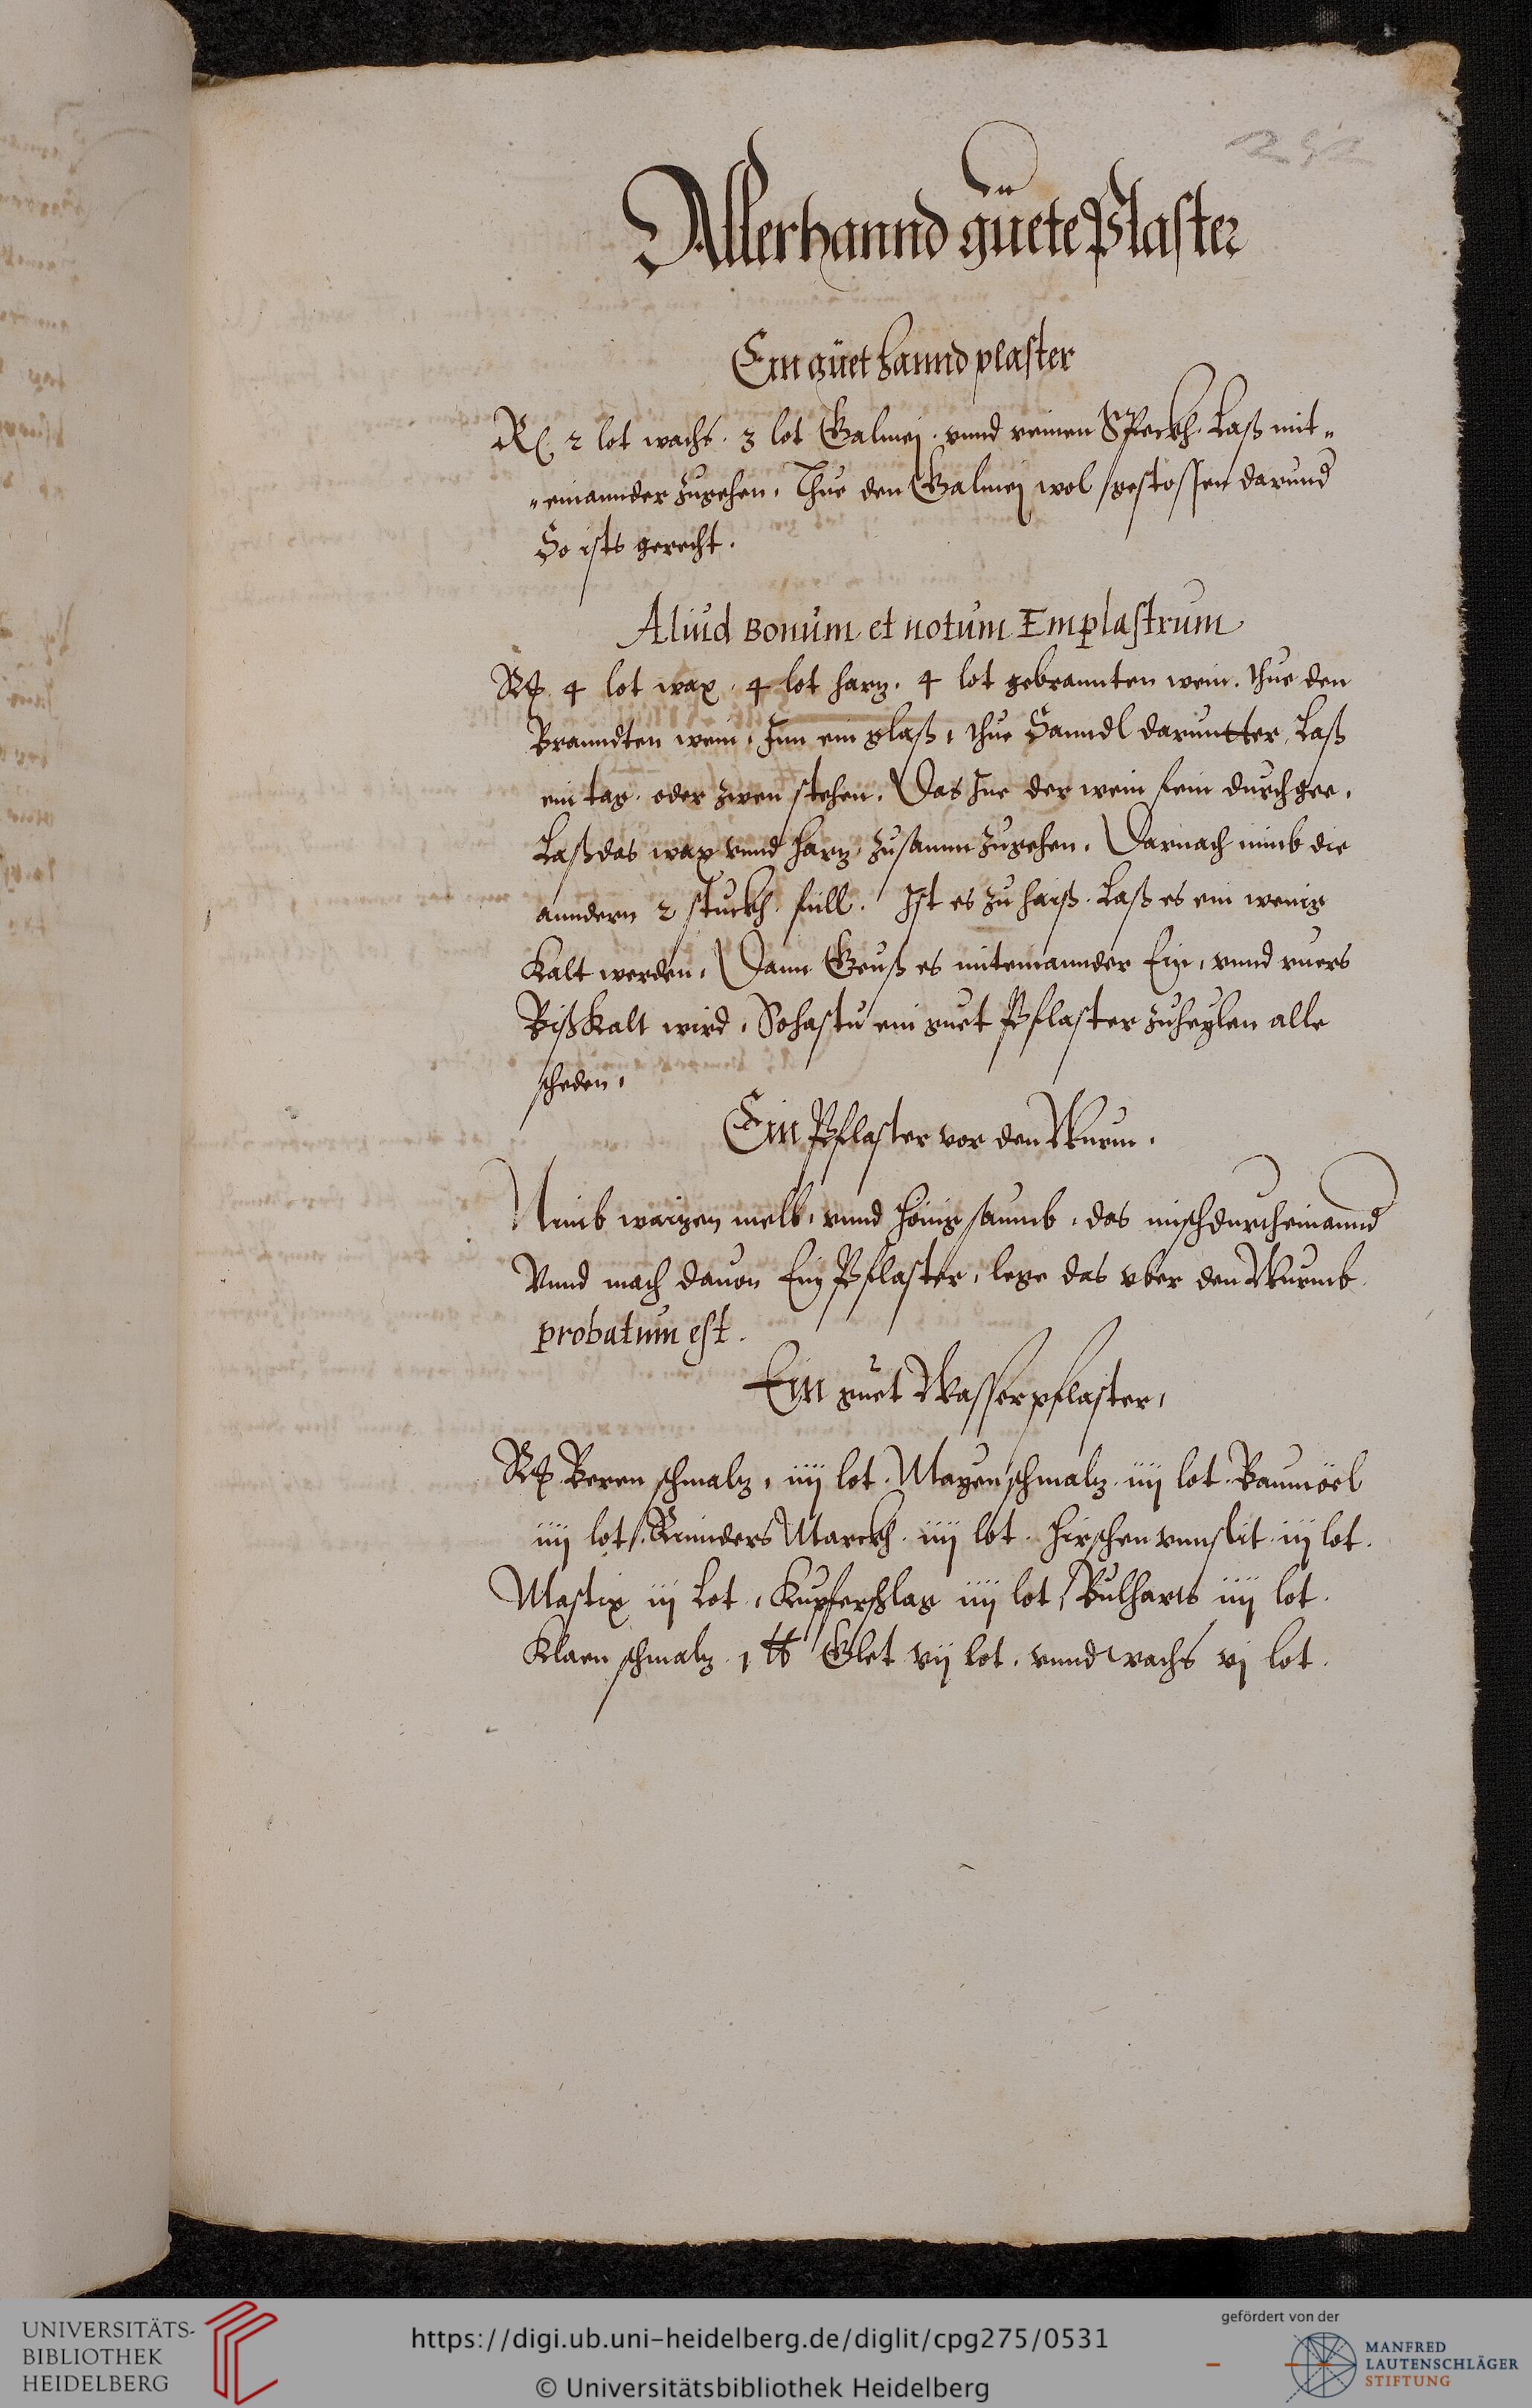 252
Allerhannd guete Plaster
Ein guet hannd plaster
Rx. 2 lot wachs. 3 lot Galmej. vnnd reinen Speckh. Laß mit„
„einannder zugehen. Thue den Galmej wol gestossen darund
So ists gerecht.
Aliud Bonum et notum Emplastrum
Rx. 4 lot wax. 4 lot harz. 4 lot gebrannten wein. thue den
Branndten wein, Inn ein glaß, thue Sanndl daruntter, Laß
ein tag. oder zwen stehen. Das Jne der wein fein durchgee.
Laß das wax vnnd harz zusamm zugehen. Darnach nimb die
anndern 2 stuckh. füll. Ist es zu haiß. Laß es ein wenig
Kalt werden. Dann Geuß es miteinannder Ein, vnnd ruers
Biß Kalt wird. So hastu ein guet Pflaster zuheylen alle
scheden.
Ein Pflaster vor den Wurm.
Nimb waizen melb, vnnd hönig saumb. das misch durcheinannd
Vnnd mach dauon Ein Pflaster, lege das vber den Wurmb
probatum est.
Ein guet Wasserpflaster.
Rx. Beren schmalz, iiij lot. Mayen schmalz iiij lot. Baumöel
iiij lot. Rinnders Marckh. iiij lot. Hirschen vnnslit iij lot.
Mastix iij Lot, Kupferschlag iiij lot, Bulharts iiij lot.
Klaen schmalz 1 ℔ Glet vij lot. vnnd wachs vj lot.
UNIVERSITÄTS-
BIBLIOTHEK
HEIDELBERG
https://digi.ub.uni-heidelberg.de/diglit/cpg275/0531
© Universitätsbibliothek Heidelberg
gefördert von der
MANFRED
LAUTENSCHLÄGER
STIFTUNG